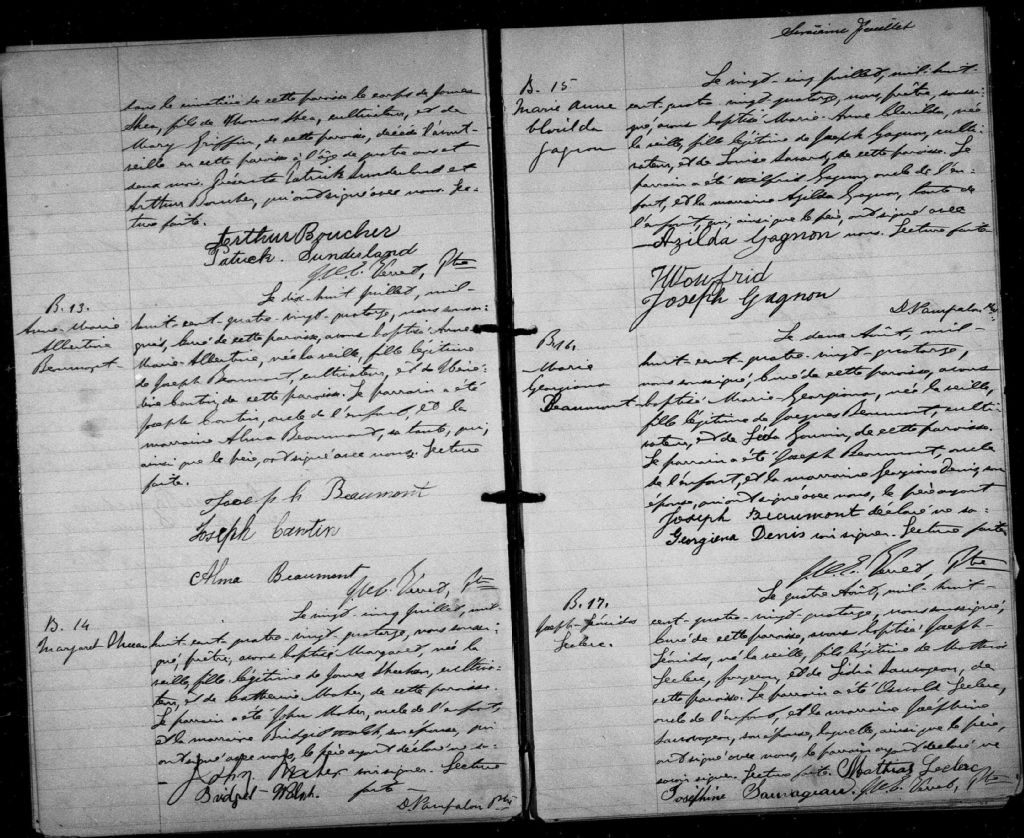 dans le cimetière de cette paroisse le corps de James
Shea, fils de Thomas Shea, cultivateur, et de
Mary Griffin, de cette paroisse, décédé l'avant-
veille en cette paroisse à l'âge de quatre ans et
onze mois. Présents Patrick Sunderland et
Arthur Boucher, qui ont signé avec nous. Lec-
ture faite.
Arthur Boucher
Patrick Sunderland
Ptre
B. 13.
Anne-Marie
Albertine
Beaumont
Le dix-huit juillet, mil-
huit-cent-quatre-vingt-quatorze, nous soussi-
gné, curé de cette paroisse, avons baptisé Anne-
Marie-Albertine, née la veille, fille légitime
de Joseph Beaumont, cultivateur, et de
Cantin, de cette paroisse. Le parrain a été
Joseph Cantin, oncle de l'enfant, et la
marraine Alma Beaumont, sa tante, qui,
ainsi que le père, ont signé avec nous. Lecture
faite.
Joseph Beaumont
Joseph Cantin
Alma Beaumont
Ptre
B. 14
Margaret
Le vingt-cinq juillet, mil-
huit-cent-quatre-vingt-quatorze, nous soussi-
gné, prêtre, avons baptisé Margaret, née la
veille, fille légitime de James Sheehan, cultiva-
teur, et de Catherine Maher, de cette paroisse.
Le parrain a été John Maher, oncle de l'enfant,
et la marraine Bridget Walsh, son épouse, qui
ont signé avec nous, le père ayant déclaré ne sa-
John Maher voir signer. Lecture
Bridget Welsh. faite
D. Pampalon Ptre
Feuillet
B. 15
Marie Anne
Clorilda
Gagnon
Le vingt-cinq juillet, mil-huit-
cent-quatre-vingt-quatorze, nous, prêtre, soussi-
gné, avons baptisé Marie-Anne Clorilda, née
la veille, fille légitime de Joseph Gagnon, culti-
vateur, et de Louise Savard, de cette paroisse. Le
parrain a été Wilfrid Gagnon, oncle de l'en-
fant, et la marraine Azilda Gagnon, tante de
l'enfant, qui, ainsi que le père, ont signé avec
Azilda Gagnon nous. Lecture faite
Joseph Gagnon
D. Pampalon Ptre
B. 16.
Marie
Georgiana
Beaumont
Le deux Août, mil-
huit-cent-quatre-vingt-quatorze,
nous soussigné, curé de cette paroisse, avons
baptisé Marie-Georgiana, née la veille,
fille légitime de Jacques Beaumont, culti-
vateur, et de Léda Gouin, de cette paroisse.
Le parrain a été Joseph Beaumont, oncle
de l'enfant, et la marraine Georgiana Denis, son
épouse, qui ont signé avec nous, le père ayant
Joseph Beaumont déclaré ne sa-
Georgiena Denis voir signer. Lecture faite
Ptre
B. 17.
Joseph-
Leclerc.
Le quatre Août, mil-huit
cent-quatre-vingt-quatorze, nous soussigné,
curé de cette paroisse, avons baptisé Joseph-
né la veille, fils légitime de Mathias
Leclerc, forgeron, et de Lédia Sauvageau, de
cette paroisse. Le parrain a été Oswald Leclerc,
oncle de l'enfant, et la marraine Joséphine
Sauvageau, son épouse, laquelle, ainsi que le père,
ont signé avec nous, le parrain ayant déclaré ne
savoir signer. Lecture faite. Mathias Leclerc
Joséphine Sauvageau Ptre